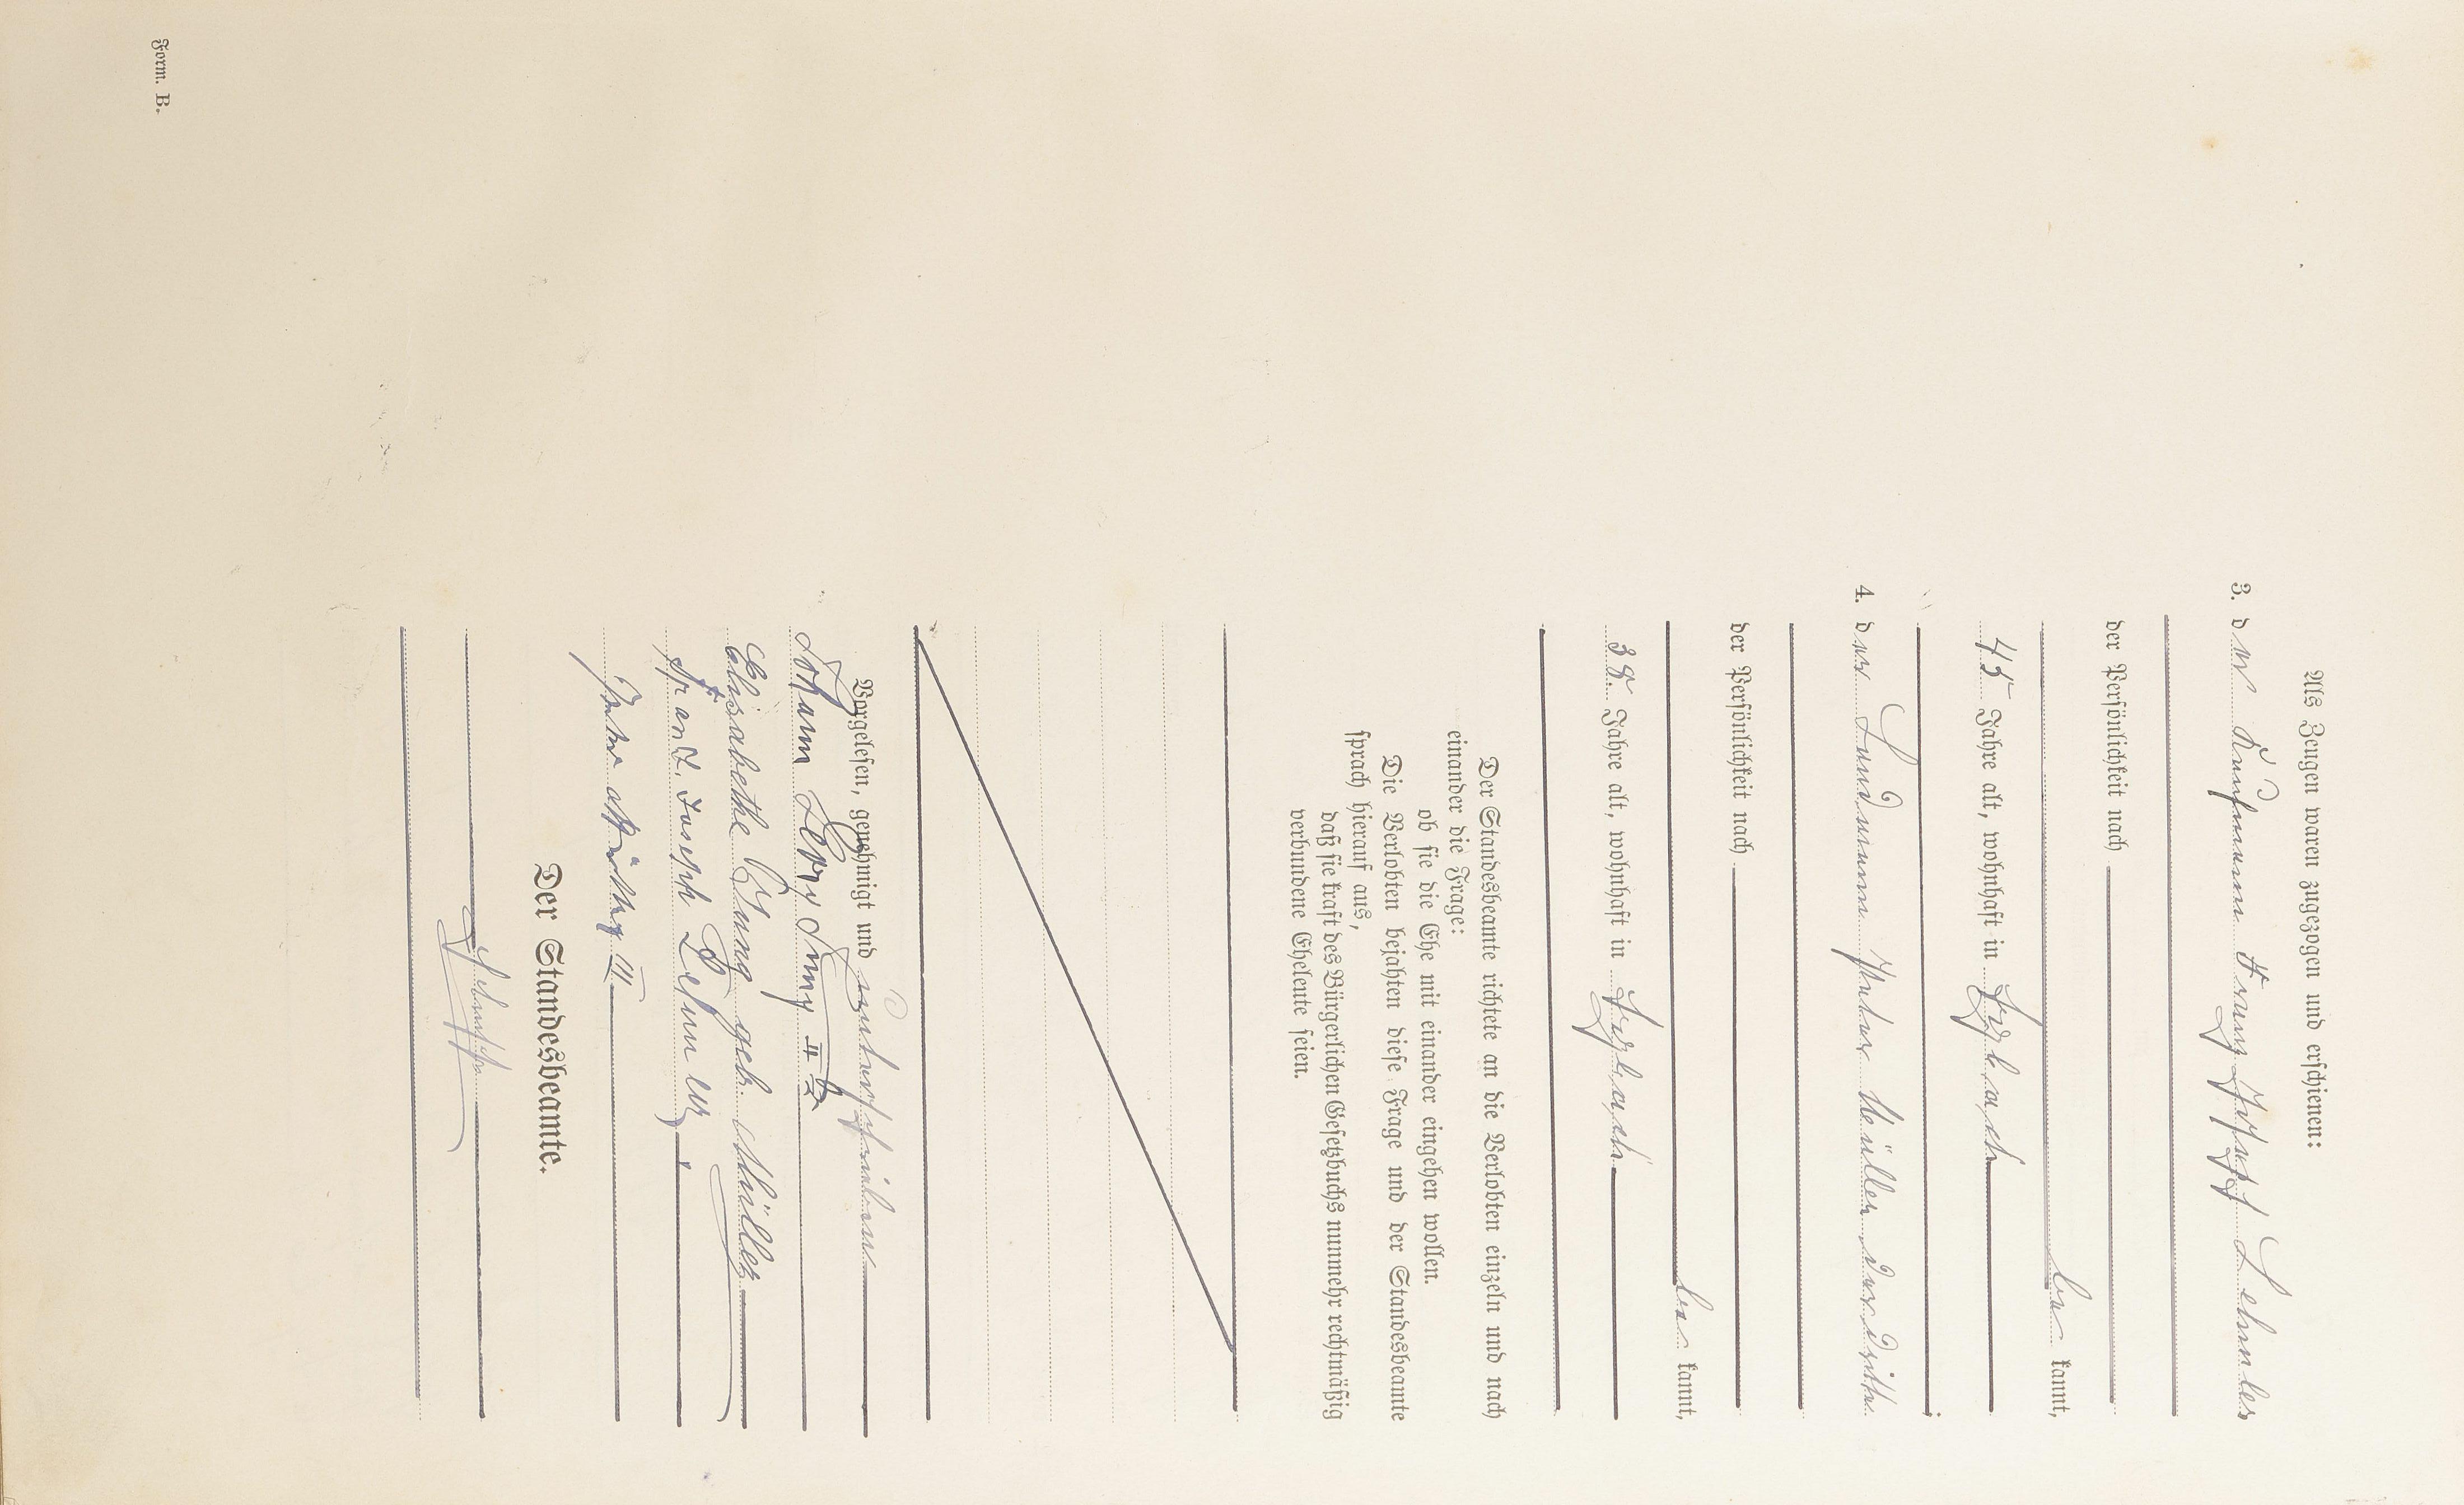 Als Zeugen waren zugezogen und erschienen:
3. der Kaufmann Franz Joseph Lehmler
der Persönlichkeit nach
be kannt,
45 Jahre alt, wohnhaft in
4. der Landmann Peter Müller der dritte
der Persönlichkeit nach
be kannt,
38 Jahre alt, wohnhaft in
Der Standesbeamte richtete an die Verlobten einzeln und nach
einander die Frage:
ob sie die Ehe mit einander eingehen wollen.
Die Verlobten bejahten diese Frage und der Standesbeamte
sprach hierauf aus,
daß sie kraft des Bürgerlichen Gesetzbuchs nunmehr rechtmäßig
verbundene Eheleute seien.
Vorgelesen, genehmigt und unterschrieben
Johann Jung
Elisabethe Jung geb. Müller
Franz Joseph Lehmler
Peter Müller III
Der Standesbeamte.
Form. B.